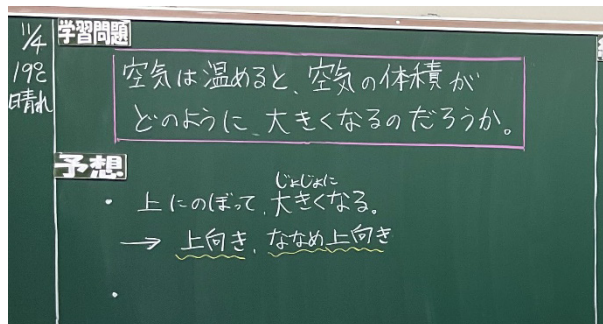 11/4
19℃
晴れ
学習問題
空気は温めると、空気の体積が
どのように、大きくなるのだろうか。
予想
じょじょに
・上にのぼって、大きくなる。
→ 上向き、ななめ上向き
・